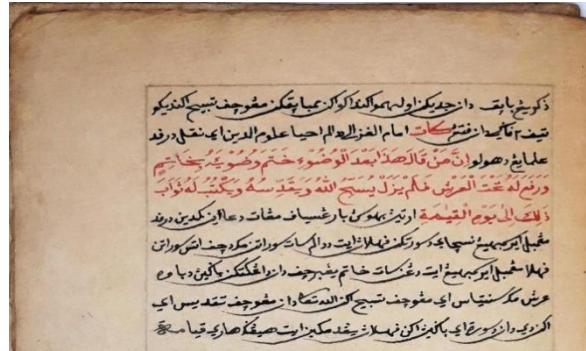 ذكويڠ باڽق دان جديكن اولهمو اكنداكو اكن ممباڽقكن مڠوچڤ تسبيح اكنديكو
تيڤ٢ ڤاكي دان ڤتڠ كات امام الغزالي دالم احيا علوم الدين اي نقل درڤد
علماء يڠ دهولو إِنَّ مَنْ قَالَ هَذَا بَعْدَ الْوُضُوْءِ خَتَمَ وُضُوْئِهِ بِخَاتِمٍ
وَرَفَعَ لَهُ تَحْتَ الْعَرْشِ فَلَمْ يَزَلْ يُسَبِّحُ اللهَ وَيُقَدِّسُهُ وَيَكْتُبُ لَهُ ثَوَابَ
ذَلِكَ اِلَى يَوْمِ الْقِيٰمَةِ ارتيڽ بهوسڽ بارڠسياڤ مڠات دعا اين كمدين درڤد
مڠمبيل اير سمبهيڠ نسچاي دسورتكن ڤهلاڽ ايت ددالم سات سورتن مك دچڤ اتس سورتن
ڤهلا مڠمبيل اير سمبهيڠ ايت دڠن سات خاتم يڠبرچڤ دان داڠكتكن باكيڽ دباوه
عرش مك سنتياس اي مڠوچڤ تسبيح اكن الله تعالى دان مڠوچڤ تقديس اي
اكندي دان دسورة اي باكيڽ اكن ڤهلاڽ يڠدمكين ايت هيڠك كهاري قيامة